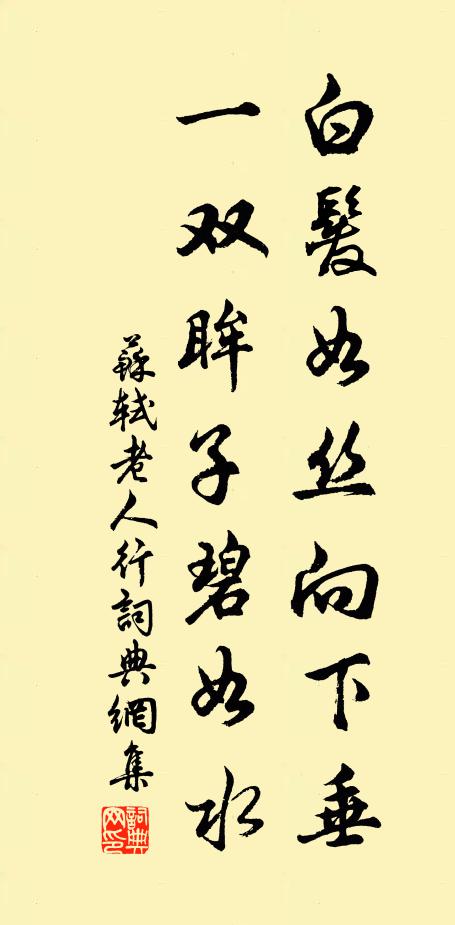 白髮如丝向下垂
一双眸子碧如水
蘇軾老人行詞典網集
詞典
网印